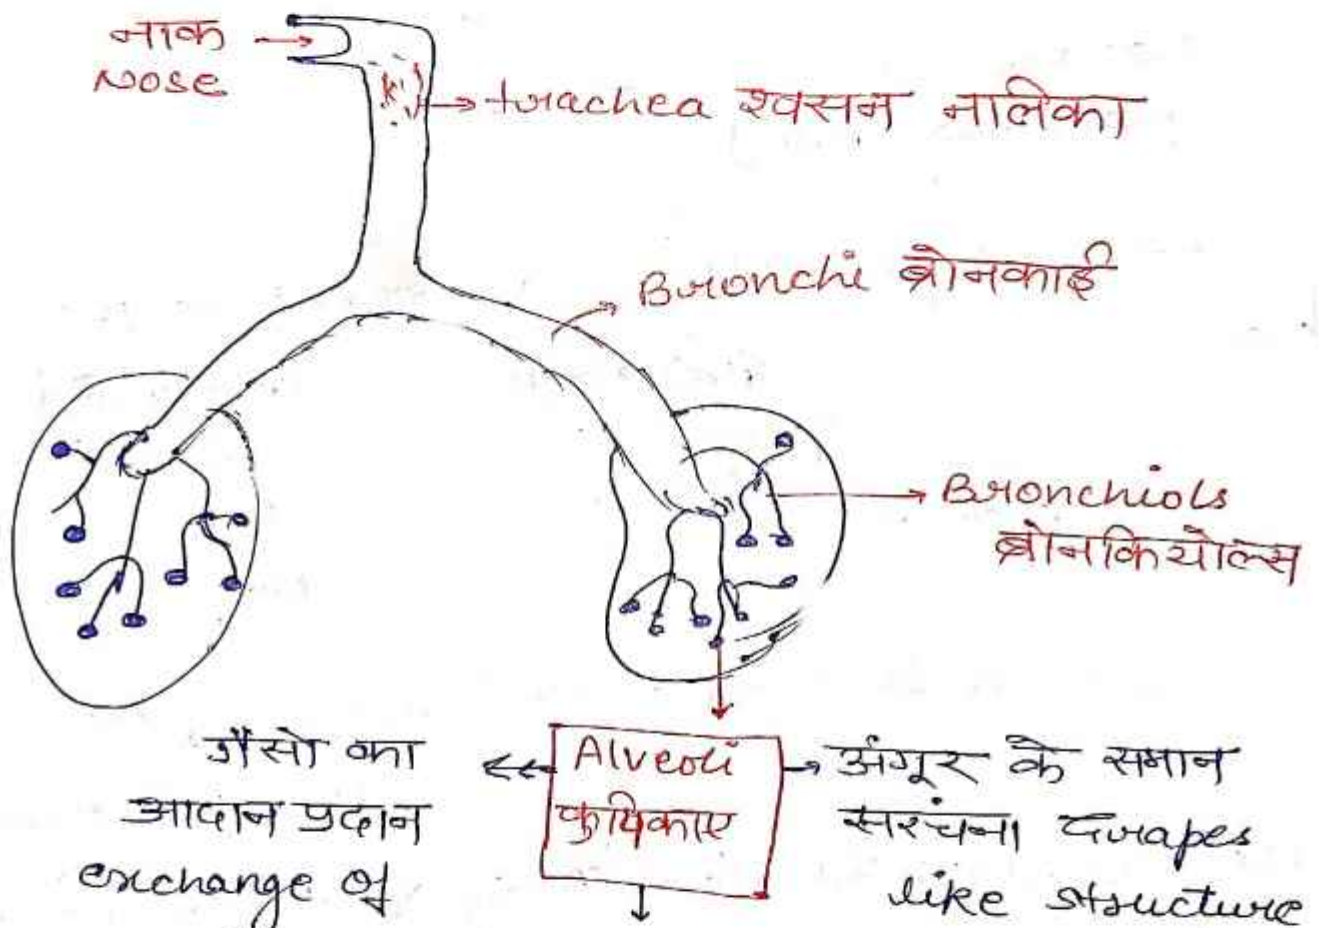 नाक
Nose
trachea श्वसन नालिका
Bronchi ब्रोनकाई
Bronchiols
ब्रोनकियोल्स
गैसो का
आदान प्रदान
exchange of
Alveoli
कुपिकाए
अंगूर के समान
सरंचना Grapes
like structure